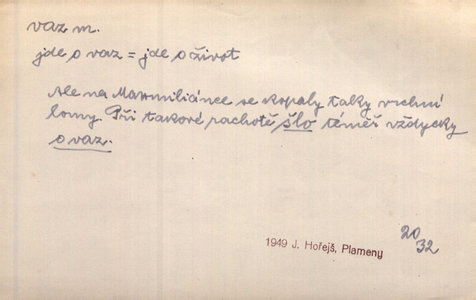 vaz m.
jde o vaz = jde o život
Ale na Maxmiliánce se kopaly talky vrchní
lomy. Při takové pachotě šlo téměř vždycky
o vaz.
20
32
1949 J. Hořejš, Plameny